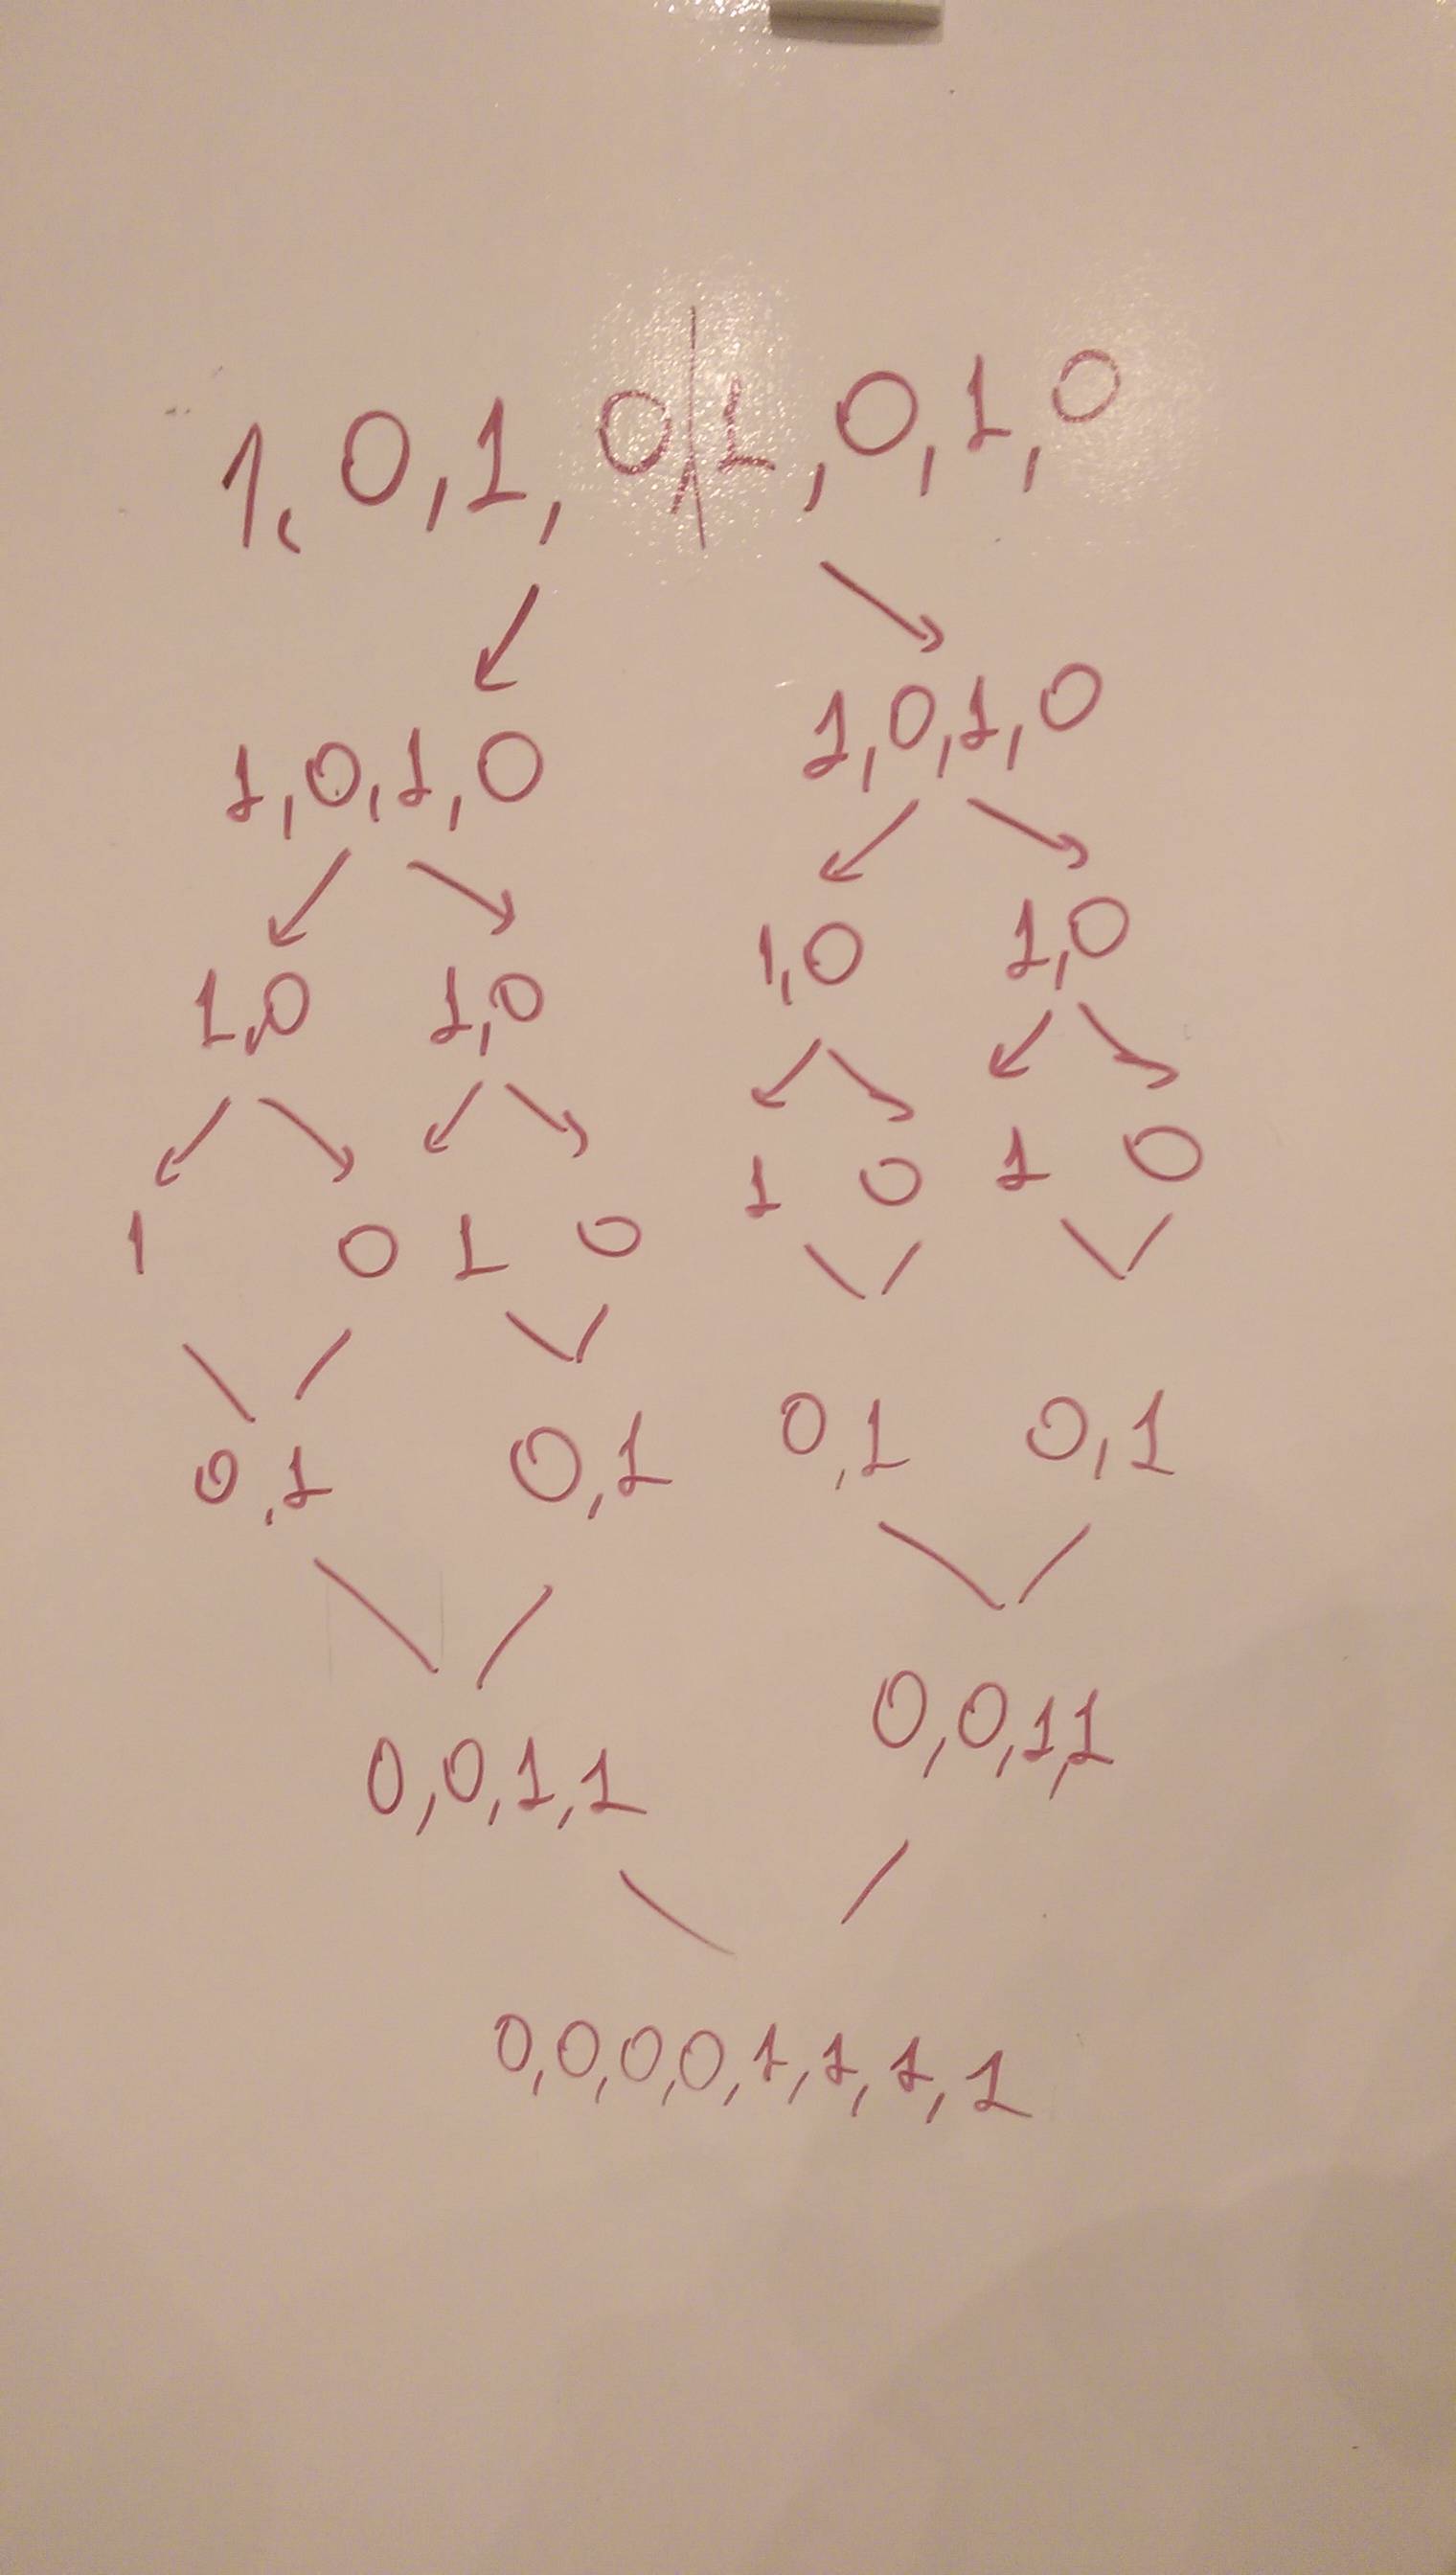 1,0,1,0,1,0,1,0
1,0,1,0 1,0,1,0
1,0 1,0 1,0 1,0
1 0 1 0 1 0 1 0
0,1 0,1 0,1 0,1
0,0,1,1 0,0,1,1
0,0,0,0,1,1,1,1